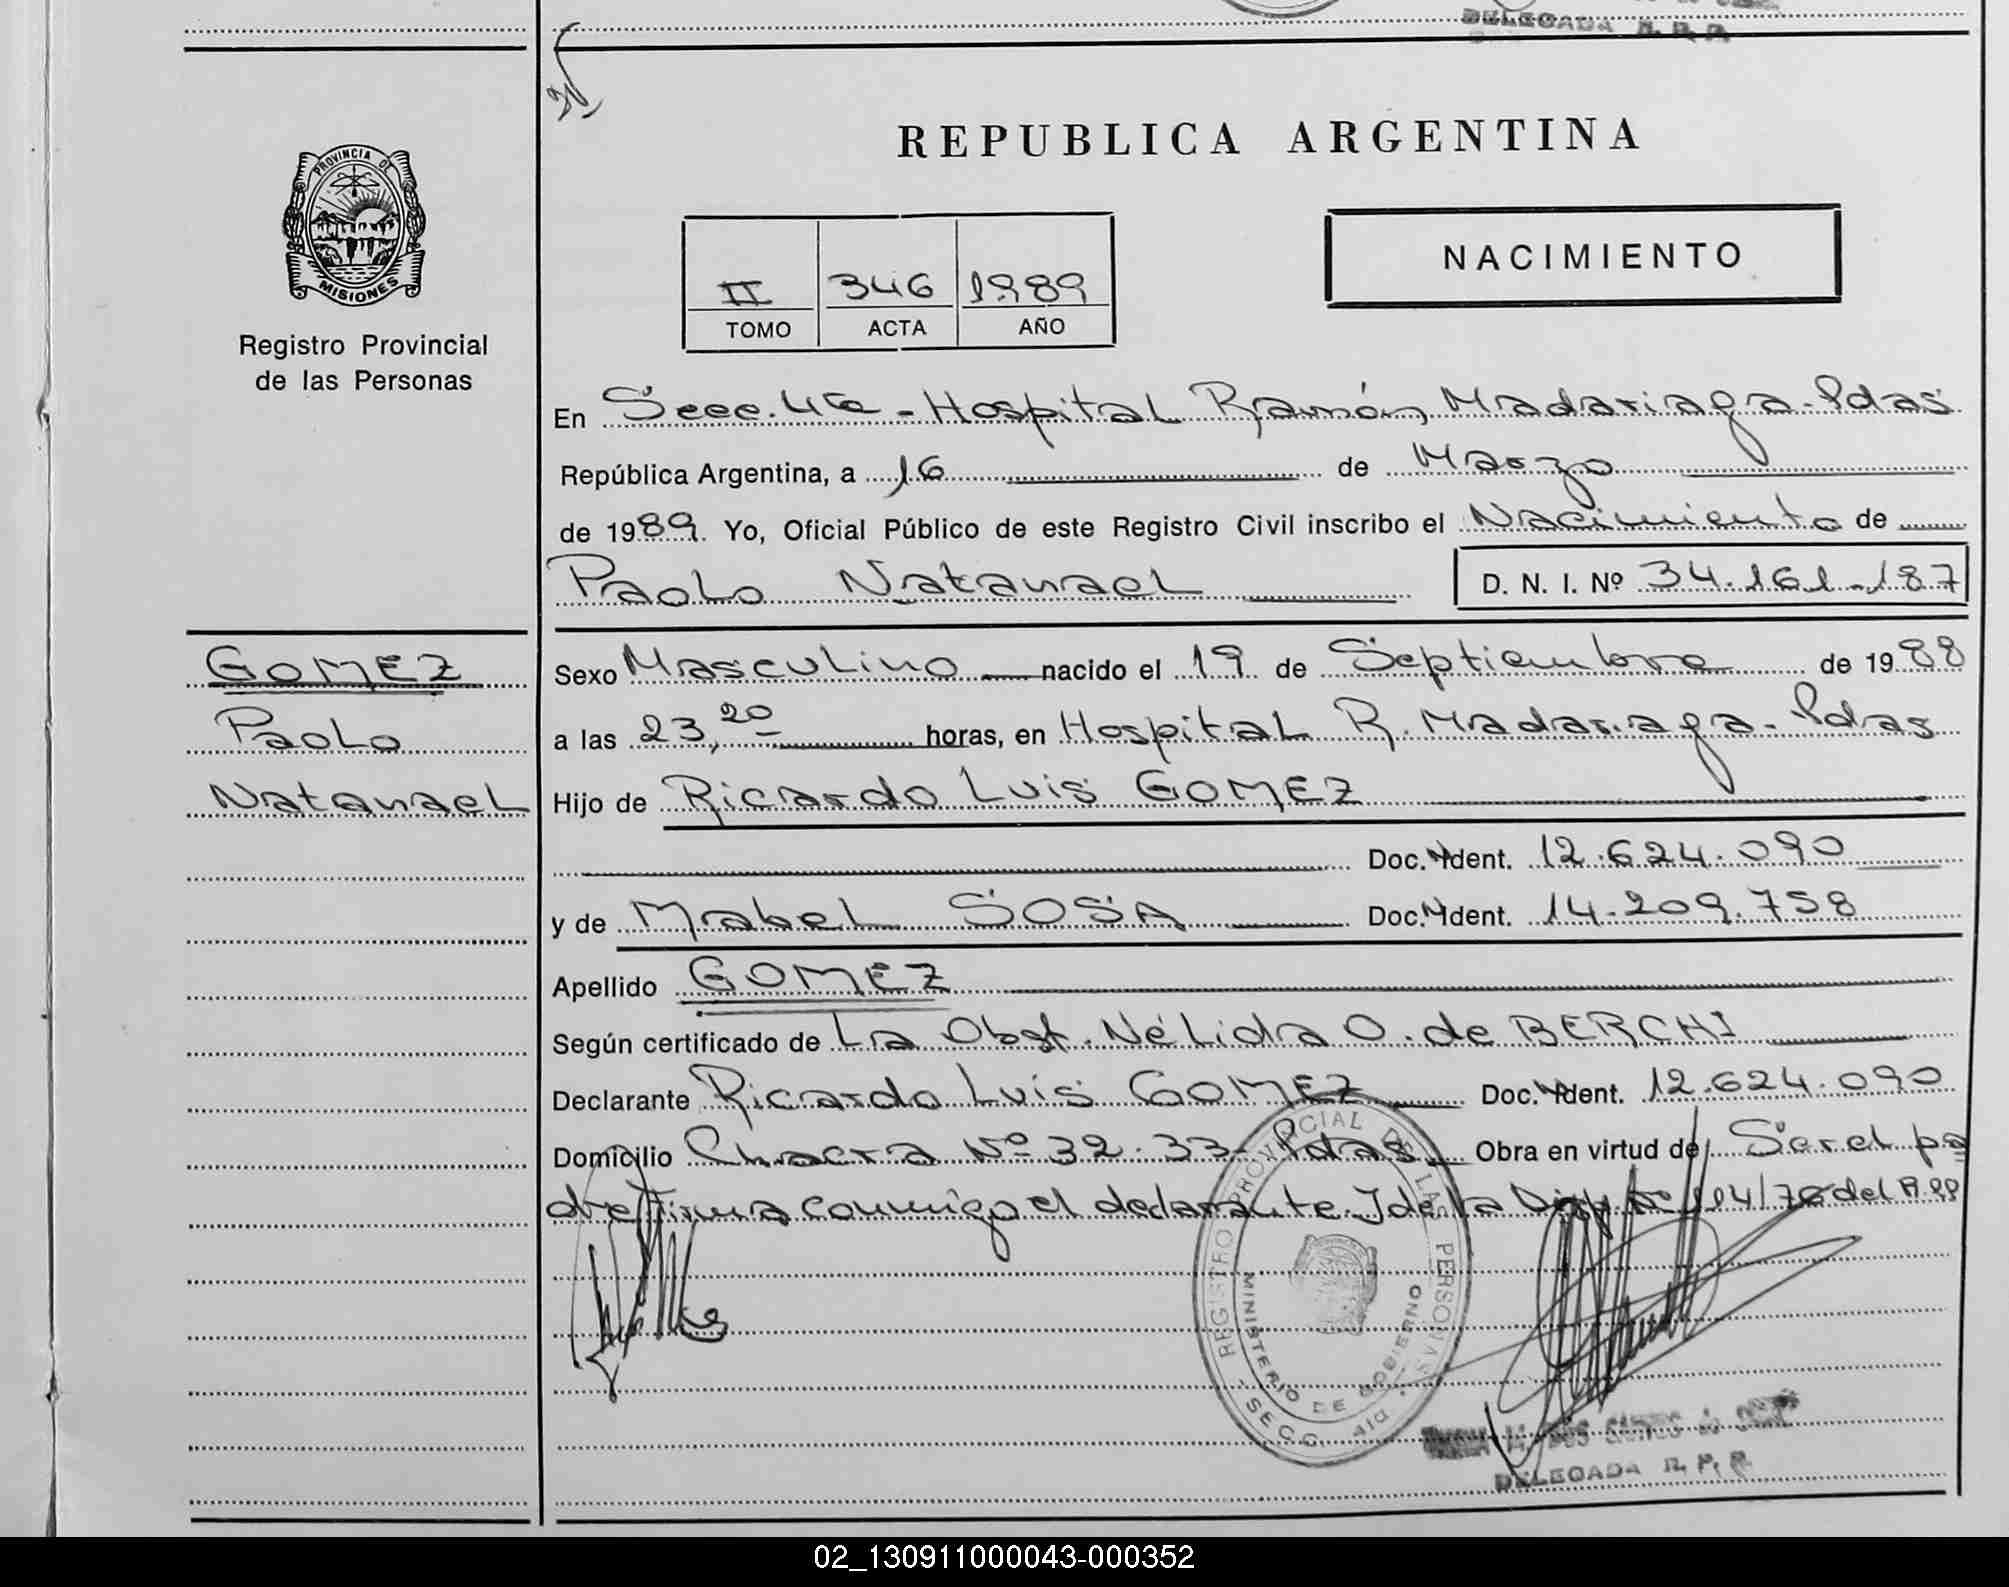 DELEGADA R. P. P.
REPUBLICA ARGENTINA
PROVINCIA DE
MISIONES
Registro Provincial
de las Personas
NACIMIENTO
II 346 1989
TOMO ACTA AÑO
En Secc. 4ta - Hospital Ramón Madariaga - Pdas
República Argentina, a 16 de Marzo
de 1989. Yo, Oficial Público de este Registro Civil inscribo el Nacimiento de
Paolo Natanael D. N. I. Nº 34.161.187
GOMEZ
Paolo
Natanael
Sexo Masculino nacido el 19 de Septiembre de 1988
a las 23,20 horas, en Hospital R. Madariaga - Pdas
Hijo de Ricardo Luis GOMEZ
Doc. Ident. 12.624.090
y de Mabel SOSA Doc. Ident. 14.209.758
Apellido GOMEZ
Según certificado de La Obst. Nélida O. de BERCHI
Declarante Ricardo Luis GOMEZ Doc. Ident. 12.624.090
Domicilio Chacra Nº 32-33 - Pdas Obra en virtud de Ser el pa
dre Firma conmigo el declarante. 114/76 del R.PP
REGISTRO PROVINCIAL DE LAS PERSONAS
MINISTERIO DE GOBIERNO
SECC.
DELEGADA R. P. P.
02_130911000043-000352